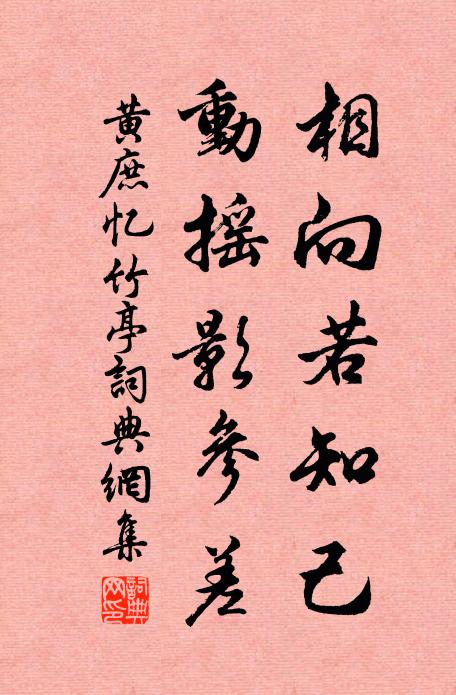 相向若知己
動摇影參差
黄庶忆竹亭詞典網集
詞典網印